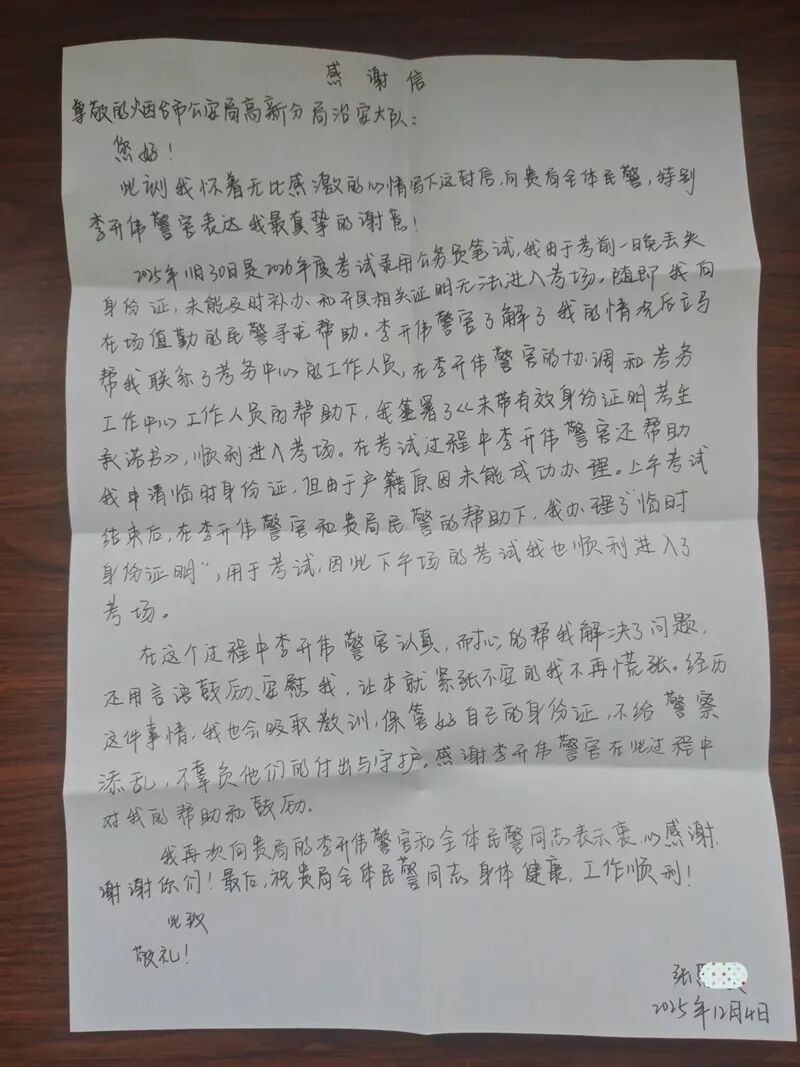 感谢信
尊敬的烟台市公安局高新分局治安大队：
您好！
此刻我怀着无比感激的心情写下这封信，向贵局全体民警，特别
李开伟警官表达我最真挚的谢意！
2025年11月30日是2026年度考试录用公务员笔试，我由于考前一日晚丢失
身份证，未能及时补办和开具相关证明无法进入考场。随即我向
在场值勤的民警寻求帮助。李开伟警官了解了我的情况后立马
帮我联系了考务中心的工作人员，在李开伟警官的协调和考务
工作中心工作人员的帮助下，我签署了《未带有效身份证明考生
承诺书》，顺利进入考场。在考试过程中李开伟警官还帮助
我申请临时身份证，但由于户籍原因未能成功办理。上午考试
结束后，在李开伟警官和贵局民警的帮助下，我办理了“临时
身份证明”，用于考试，因此下午场的考试我也顺利进入了
考场。
在这个过程中李开伟警官认真，耐心的帮我解决了问题，
还用言语鼓励、安慰我，让本就紧张不安的我不再慌张。经历
这件事情，我也会吸取教训，保管好自己的身份证，不给警察
添乱，不辜负他们的付出与守护。感谢李开伟警官在此过程中
对我的帮助和鼓励。
我再次向贵局的李开伟警官和全体民警同志表示衷心感谢，
谢谢你们！最后，祝贵局全体民警同志身体健康，工作顺利！
此致
敬礼！
张
2025年12月4日